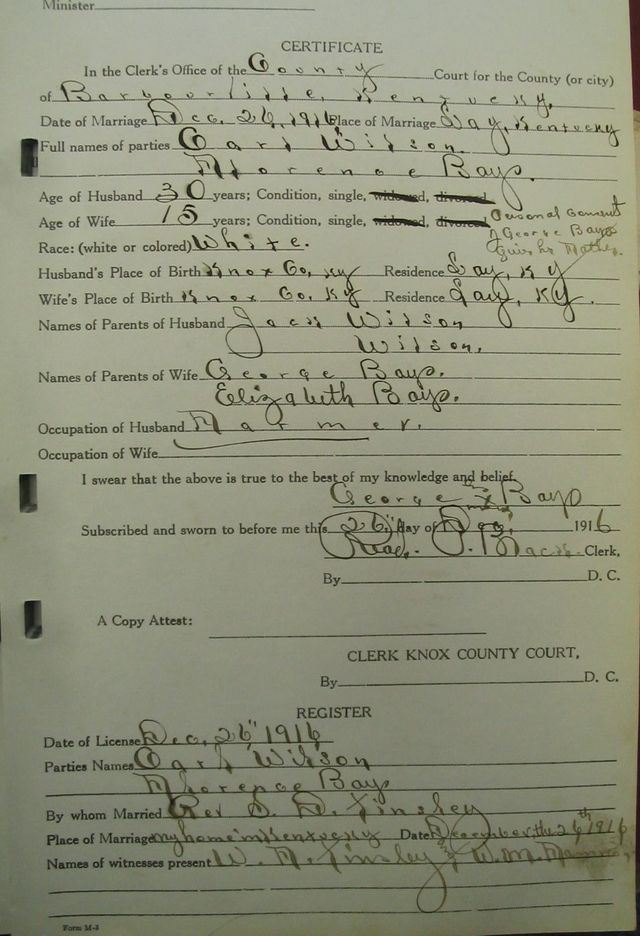 Minister
CERTIFICATE
In the Clerk's Office of the County Court for the County (or city)
of Barbourville, Kentucky.
Date of Marriage Dec. 26, 1916 Place of Marriage Gay, Kentucky
Full names of parties Carl Wilson.
Florence Bays.
Age of Husband 30 years; Condition, single, widowed, divorced
Age of Wife 15 years; Condition, single, widowed, divorced Personal Consent
Race: (white or colored) White. of George Bays
Husband's Place of Birth Knox Co, Ky Residence Gay, Ky
Wife's Place of Birth Knox Co, Ky Residence Gay, Ky.
Names of Parents of Husband Jack Wilson
Wilson.
Names of Parents of Wife George Bays.
Elizabeth Bays.
Occupation of Husband Farmer.
Occupation of Wife
I swear that the above is true to the best of my knowledge and belief.
George x Bays
Subscribed and sworn to before me this 26" day of Dec. 1916
Clerk,
By D. C.
A Copy Attest:
CLERK KNOX COUNTY COURT,
By D. C.
REGISTER
Date of License Dec. 26" 1916
Parties Names Carl Wilson
Florence Bays
By whom Married Rev Tinsley
Place of Marriage my home in Kentucky Date December the 26th 1916
Names of witnesses present Tinsley & W. M.
Form M-3